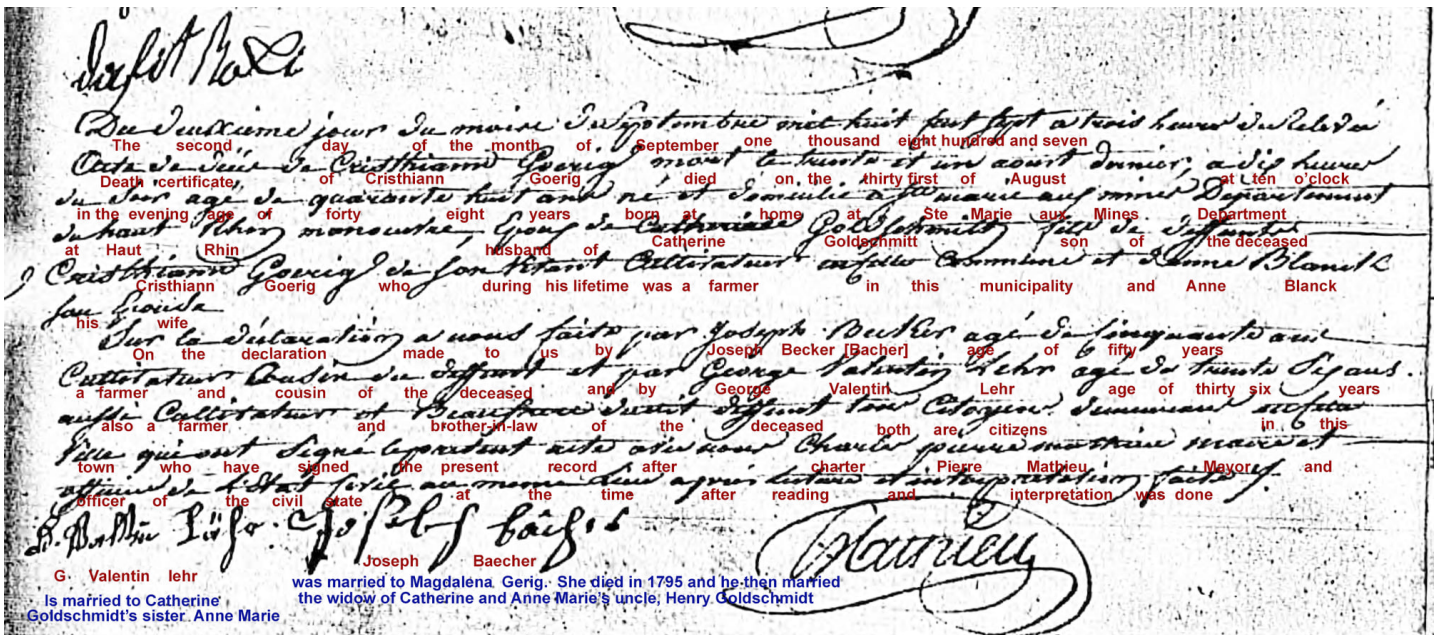 Du deuxieme jour du moire de Septembre mil huit sent sept a trois heure du Relevée
The second day of the month of September one thousand eight hundred and seven
Acte de de Cristhiann Goerig mort le trente et un aoust dernier a dix heure
Death certificate, of Cristhiann Goerig died on the thirty first of August at ten o'clock
du soir agé de quarante huit ans né et domicilié a Ste marie aux mines Departement
in the evening, age of forty eight years born at home at Ste Marie aux Mines Department
de haut Rhin Epous de Catherine Goldschmitt fils de deffunts
at Haut Rhin husband of Catherine Goldschmitt son of the deceased
Cristhiann Goerig de son vivant Cultivateur en cette Commune et d'Anne Blanck
Cristhiann Goerig who during his lifetime was a farmer in this municipality and Anne Blanck
sou Epouse
his wife
Sur la declaration a nous faite par Joseph Becker agé de cinquante ans
On the declaration made to us by Joseph Becker [Bacher] age of fifty years
Cultivateur Cousin du deffunt et par George Valentin Lehr agé de trente Six ans.
a farmer and cousin of the deceased and by George Valentin Lehr age of thirty six years
aussi Cultivateur et Beaufrere dudit deffunt tous Citoyens demeurant en cette
also a farmer and brother-in-law of the deceased both are citizens in this
Ville qui ont Signé le present acte avec nous Charle pierre mathieu maire et
town who have signed the present record after charter Pierre Mathieu Mayor and
officier de l'Etat Civil au meme Lieu apres lecture et interpretation faite
officer of the civil state at the time after reading and interpretation was done
Joseph bächer Mathieu
Joseph Baecher
G Valentin lehr
was married to Magdalena Gerig. She died in 1795 and he then married
the widow of Catherine and Anne Marie's uncle, Henry Goldschmidt
Is married to Catherine
Goldschmidt's sister Anne Marie